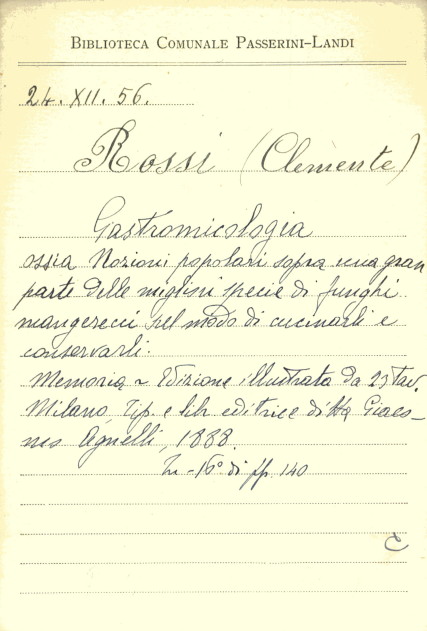 BIBLIOTECA COMUNALE PASSERINI-LANDI
24. XII. 56.
Rossi (Clemente)
Gastromicologia
ossia Nozioni popolari sopra una gran
parte delle migliori specie di funghi
mangerecci sul modo di cucinarli e
conservarli.
Memoria ~ Edizione illustrata da 23 tav.
Milano, Tip. e libr. editrice ditta Giaco-
mo Agnelli, 1888.
In-16° di pp. 140
C